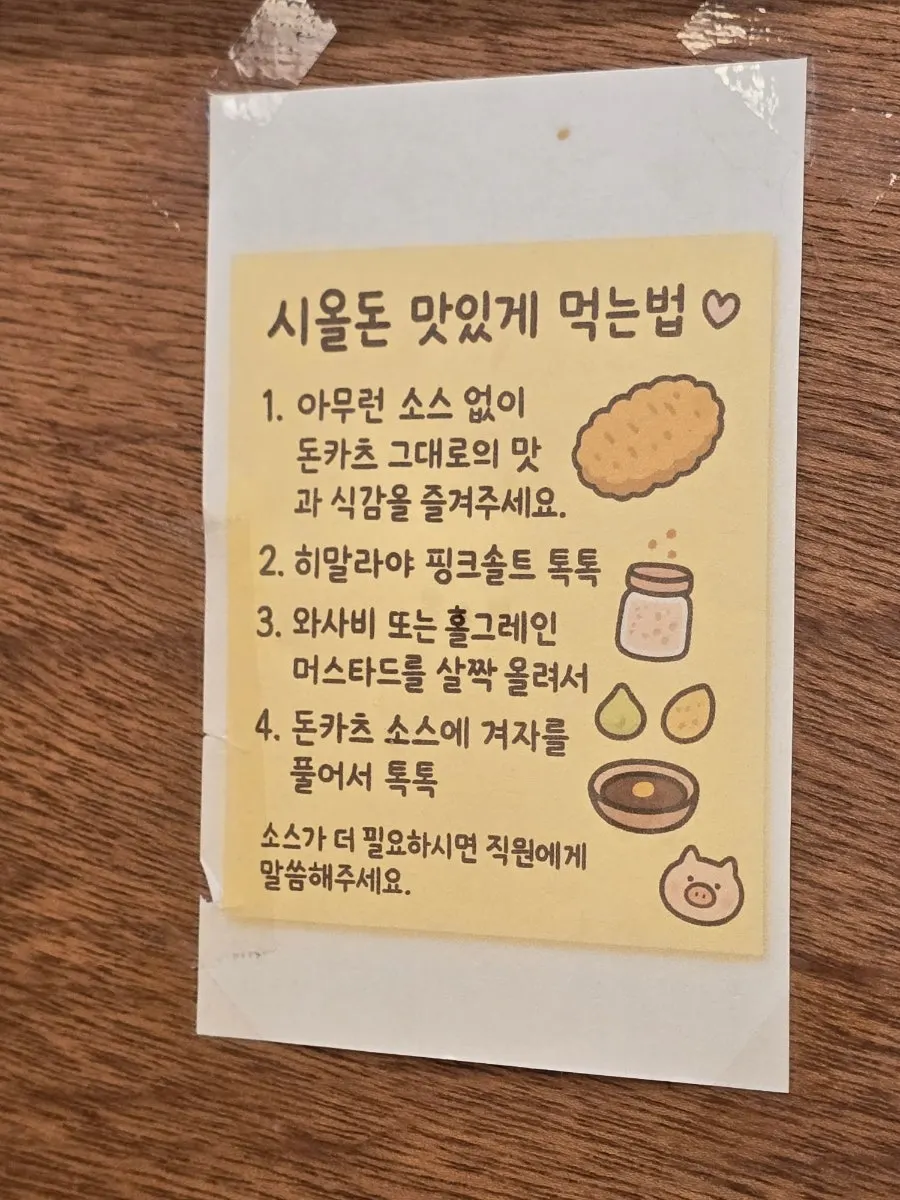 시올돈 맛있게 먹는법
1. 아무런 소스 없이
돈카츠 그대로의 맛
과 식감을 즐겨주세요.
2. 히말라야 핑크솔트 톡톡
3. 와사비 또는 홀그레인
머스타드를 살짝 올려서
4. 돈카츠 소스에 겨자를
풀어서 톡톡
소스가 더 필요하시면 직원에게
말씀해주세요.